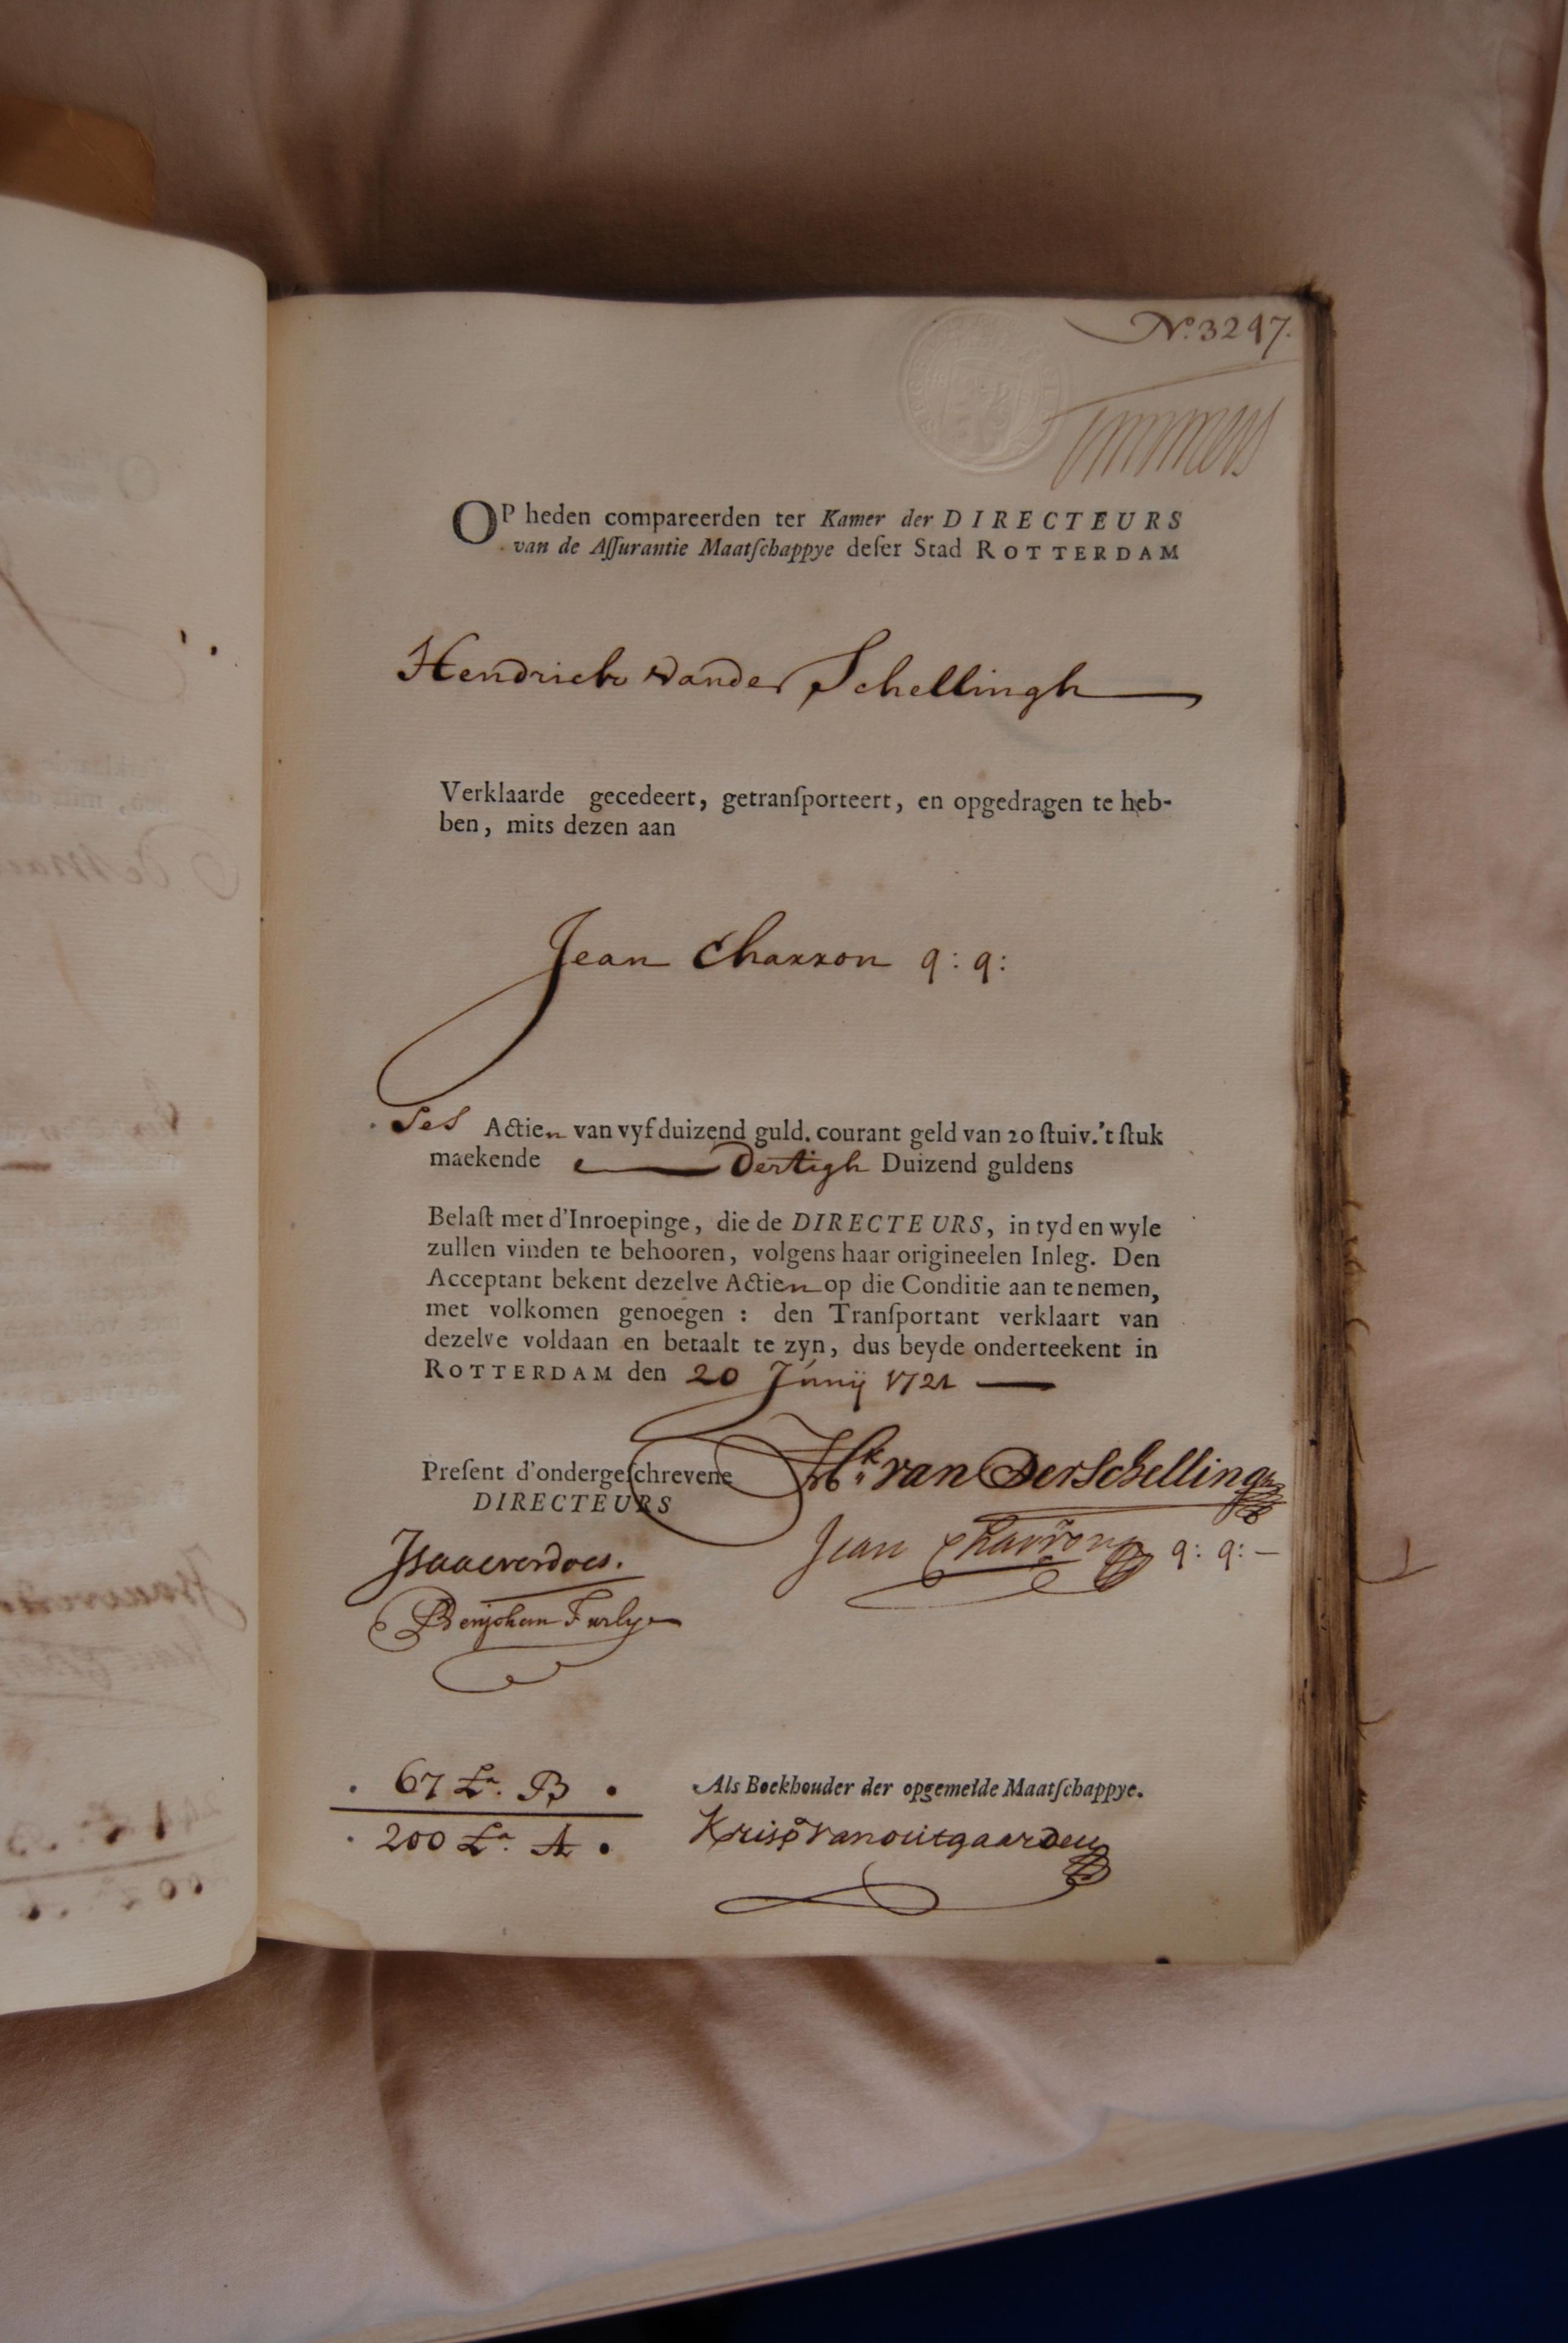 No. 3247.
Timmers
OP heden compareerden ter Kamer der DIRECTEURS
van de Aſſurantie Maatſchappye deſer Stad ROTTERDAM
Hendrick vander Schellingh
Verklaarde gecedeert, getranſporteert, en opgedragen te heb-
ben, mits dezen aan
Jean Charron q: q:
Ses Actien van vyf duizend guld. courant geld van 20 ſtuiv. 't ſtuk
maekende Dertigh Duizend guldens
Belaſt met d'Inroepinge, die de DIRECTEURS, in tyd en wyle
zullen vinden te behooren, volgens haar origineelen Inleg. Den
Acceptant bekent dezelve Actien op die Conditie aan te nemen,
met volkomen genoegen : den Tranſportant verklaart van
dezelve voldaan en betaalt te zyn, dus beyde onderteekent in
ROTTERDAM den 20 Junij 1721
Preſent d'ondergeſchrevene
DIRECTEURS
Hk. van Der Schellingh
Jean Charron q: q:
Isaac verdoes.
Benjohan Furly
67 La. B
200 La. A
Als Boekhouder der opgemelde Maatſchappye.
Krisp van outgaarden